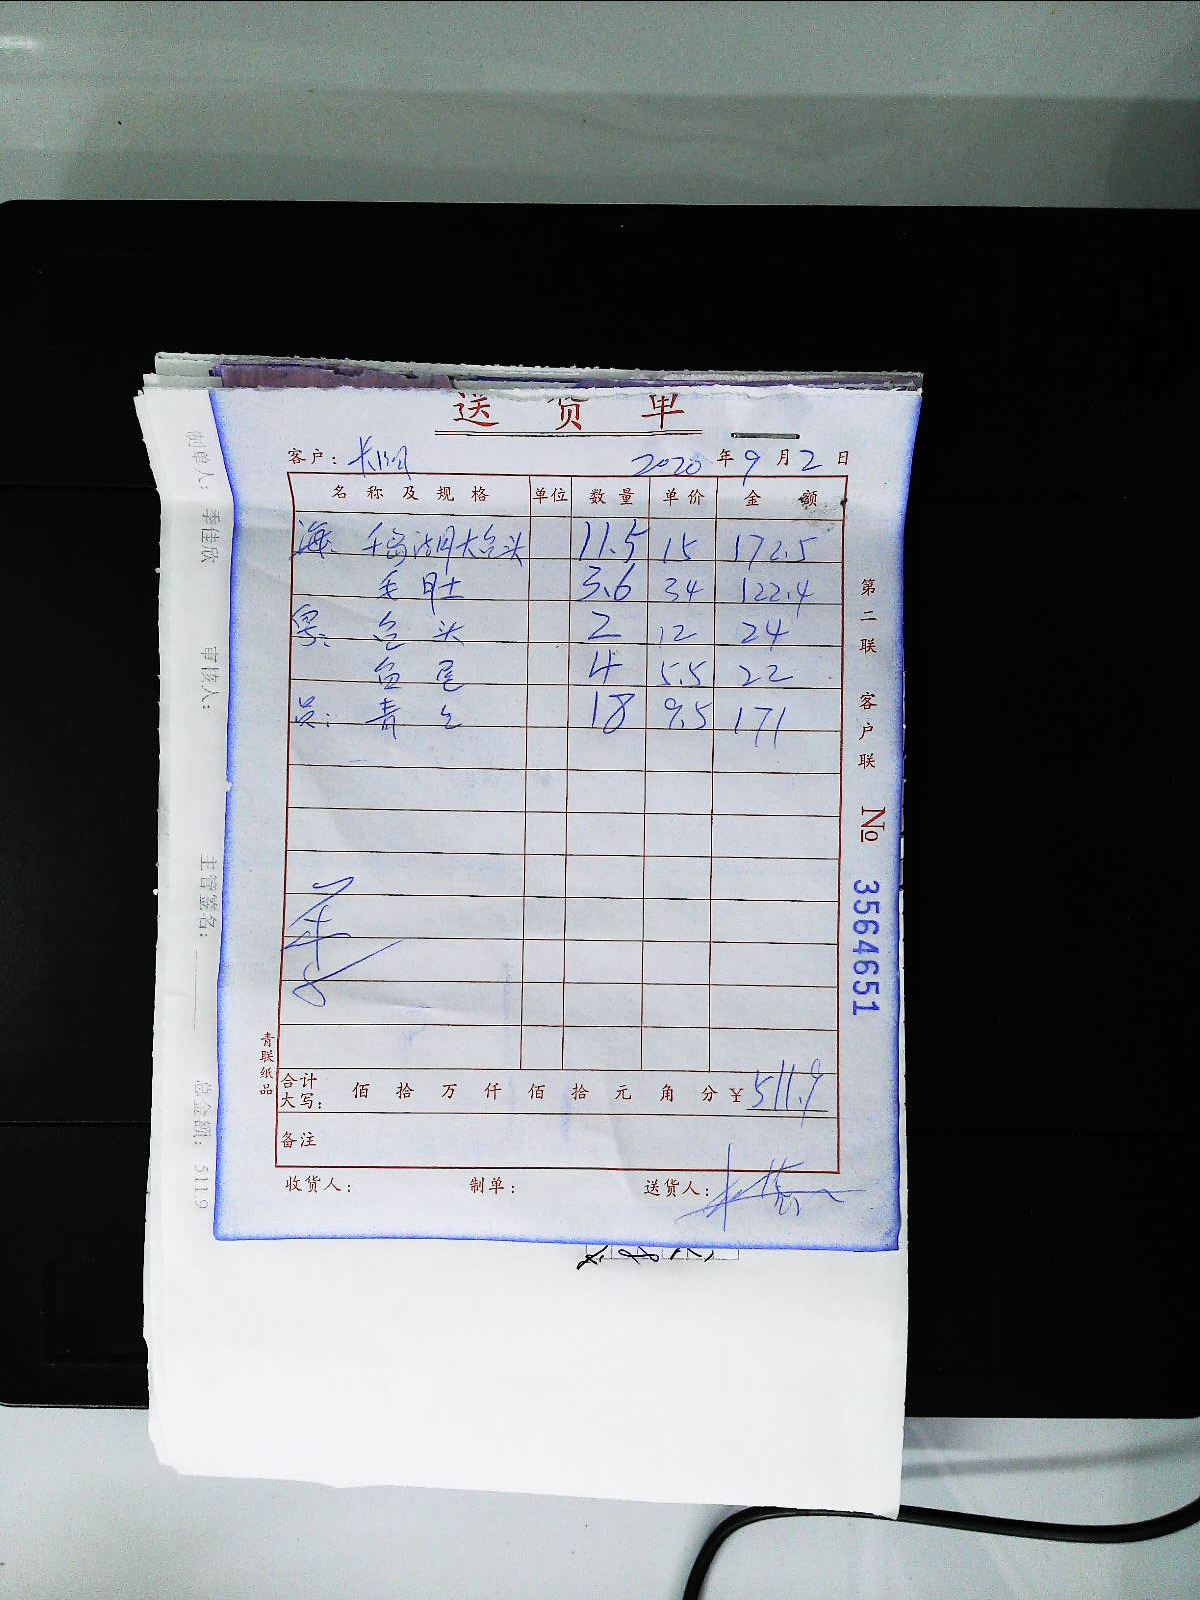 送货单
客户: 2020年9月2日
名称及规格 单位 数量 单价 金额
海: 千岛湖大鱼头 11.5 15 172.5
毛肚 3.6 34 122.4
鱼头 2 12 24
鱼尾 4 5.5 22
员: 青鱼 18 9.5 171
合计大写: 佰拾万仟佰拾元角分 ¥511.9
备注
收货人: 制单: 送货人:
第二联 客户联 № 3564651
青联纸品
制单人: 季佳欣 审核人: 主管签名: 总金额: 511.9